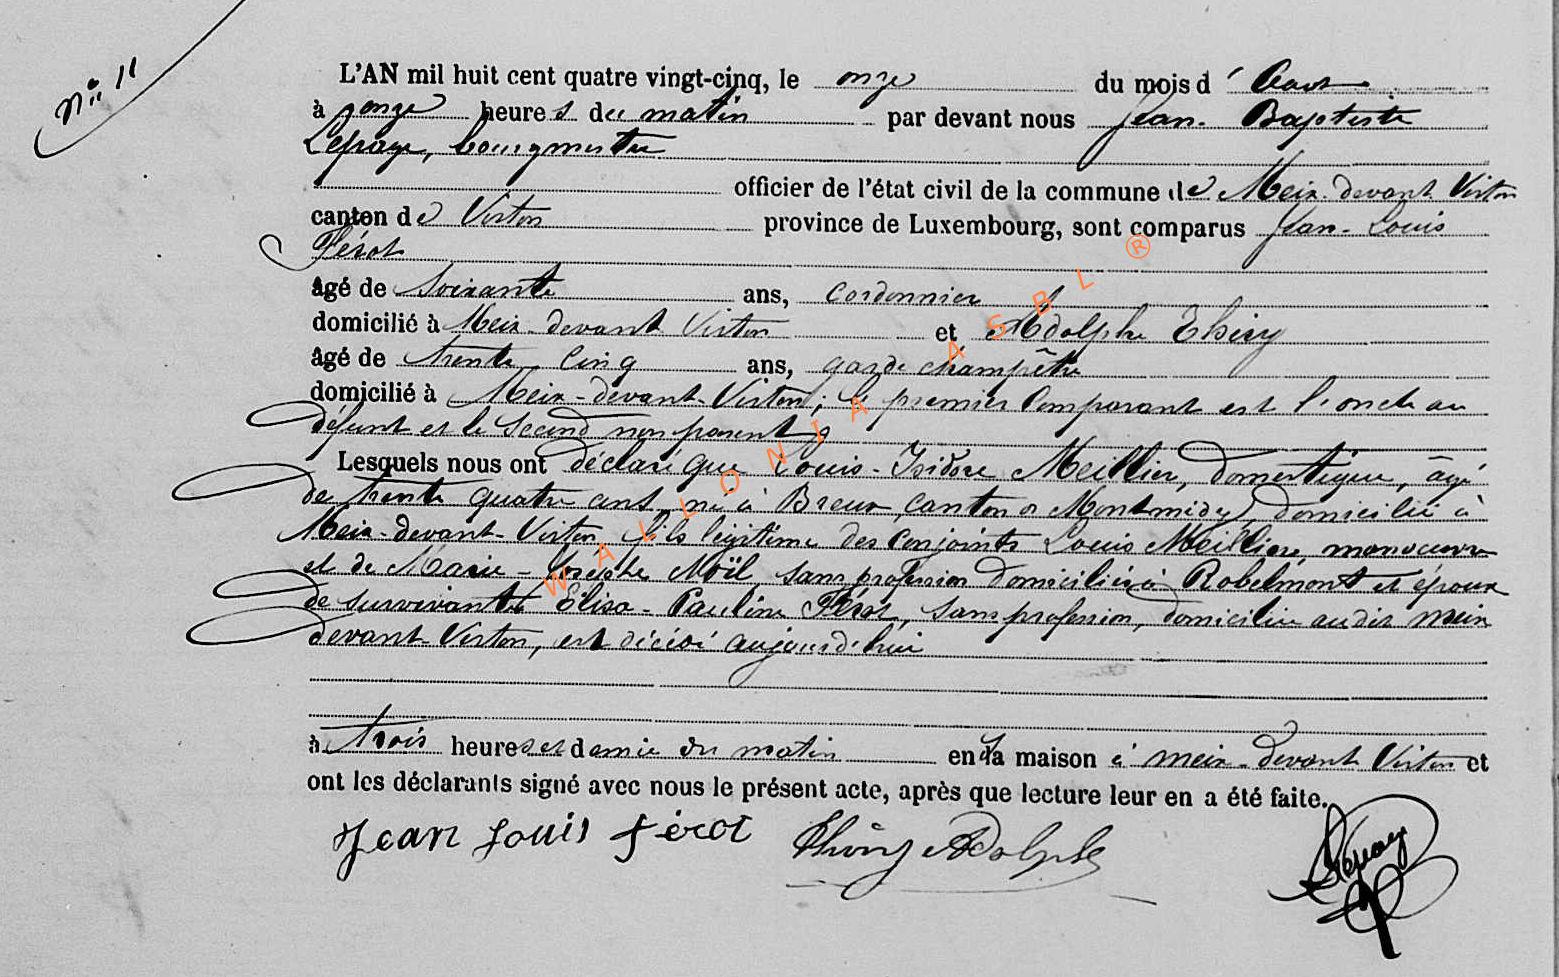 N° 11
L'AN mil huit cent quatre vingt-cinq, le onze du mois d' Août
à onze heures du matin par devant nous Jean-Baptiste
Lepage, bourgmestre
officier de l'état civil de la commune de Meix-devant Virton
canton de Virton province de Luxembourg, sont comparus Jean-Louis
Férot
âgé de soixante ans, cordonnier
domicilié à Meix-devant Virton et Adolphe Thiry
âgé de trente cinq ans, garde champêtre
domicilié à Meix-devant-Virton; le premier comparant est l'oncle au
défunt et le second non parent
Lesquels nous ont déclaré que Louis-Isidore Meillier, domestique, âgé
de trente quatre ans, né à Breux, canton de Montmidy, domicilié à
Meix-devant-Virton, fils légitime des conjoints Louis Meillier, manoeuvre
et de Marie- Noël, sans profession domiciliés à Robelmont et époux
de survivante Élisa-Pauline Férot, sans profession, domiciliée audit Meix
devant-Virton, est décédé aujourd'hui
à trois heures et demie du matin en sa maison à Meix-devant Virton et
ont les déclarants signé avec nous le présent acte, après que lecture leur en a été faite.
Jean Louis Férot Thiry Adolphe Lepage
WALLONIA ASBL ®